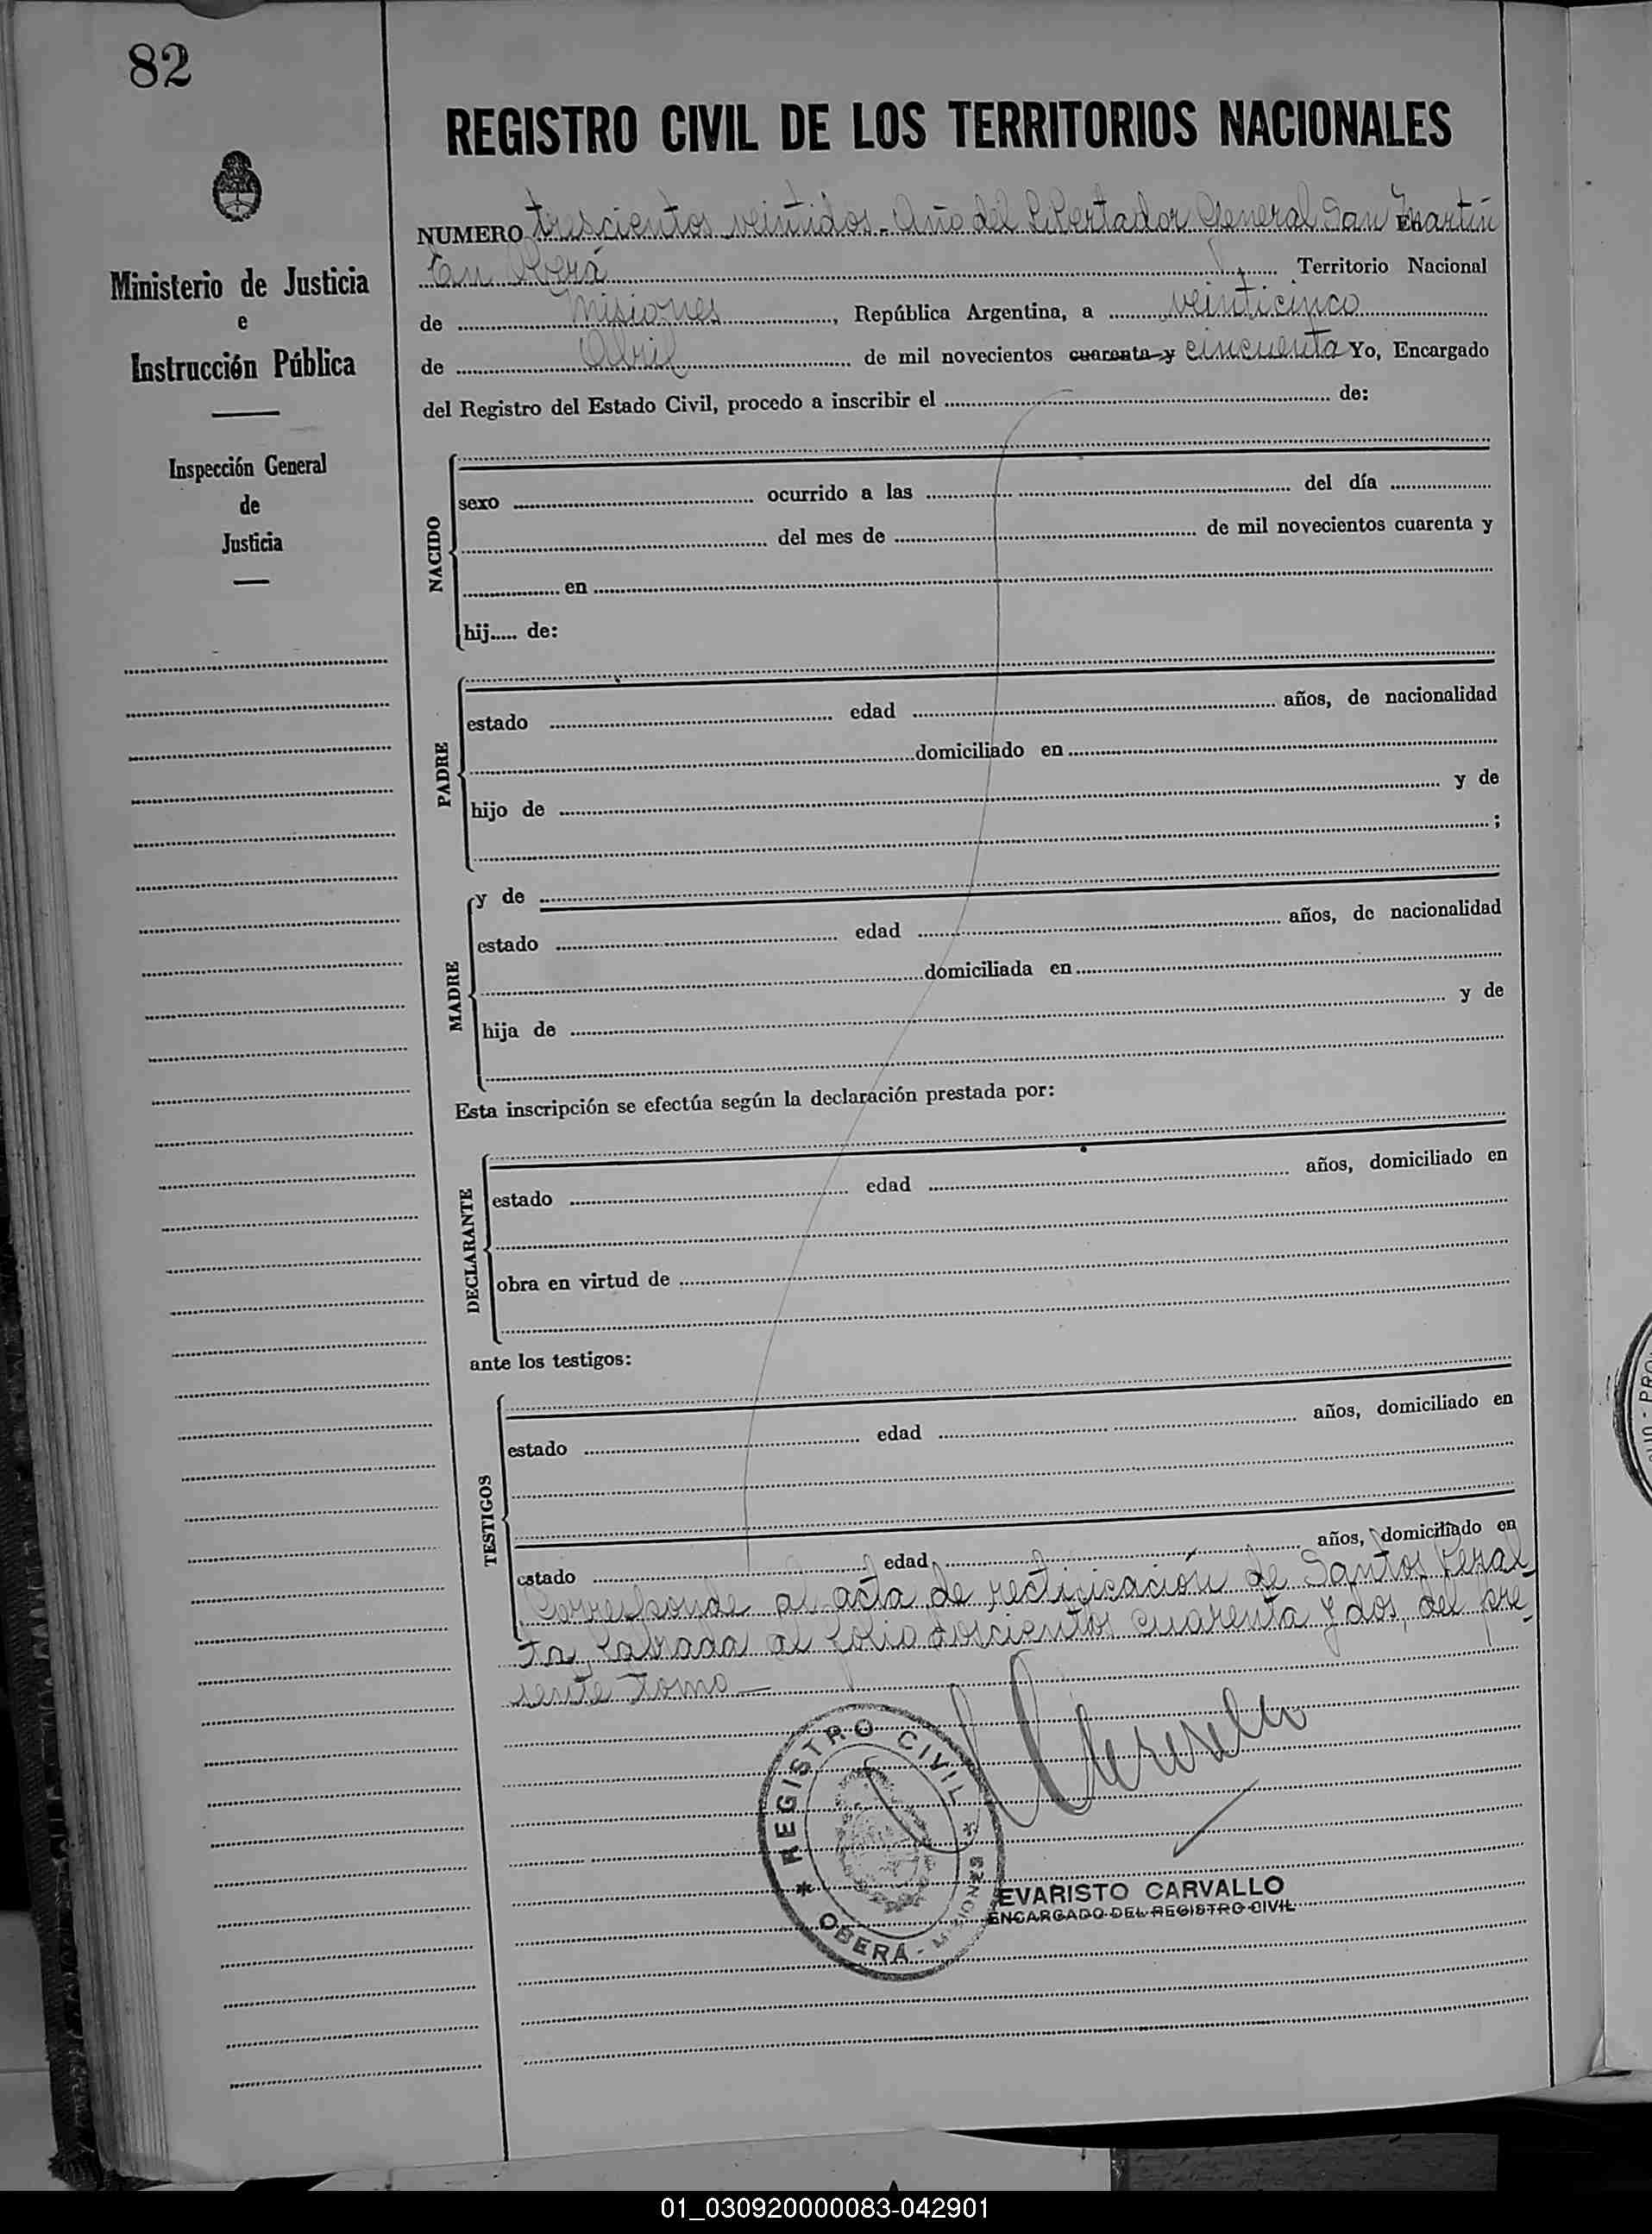 82
REGISTRO CIVIL DE LOS TERRITORIOS NACIONALES
Ministerio de Justicia
e
Instrucción Pública
Inspección General
de
Justicia
NUMERO trescientos veintidos.- Año del Libertador General San Martín
En Oberá Territorio Nacional
de Misiones, República Argentina, a veinticinco
de Abril de mil novecientos cuarenta y cincuenta Yo, Encargado
del Registro del Estado Civil, procedo a inscribir el de:
NACIDO
sexo ocurrido a las del día
del mes de de mil novecientos cuarenta y
en
hij..... de:
PADRE
estado edad años, de nacionalidad
domiciliado en
hijo de y de
;
MADRE
y de
estado edad años, de nacionalidad
domiciliada en
hija de y de
Esta inscripción se efectúa según la declaración prestada por:
DECLARANTE
estado edad años, domiciliado en
obra en virtud de
ante los testigos:
TESTIGOS
estado edad años, domiciliado en
estado edad años, domiciliado en
Corresponde al acta de rectificación de Santos Peral
ta, labrada al folio doscientos cuarenta y dos, del pre-
sente tomo—
REGISTRO CIVIL
OBERÁ - MISIONES
EVARISTO CARVALLO
ENCARGADO DEL REGISTRO CIVIL
01_030920000083-042901